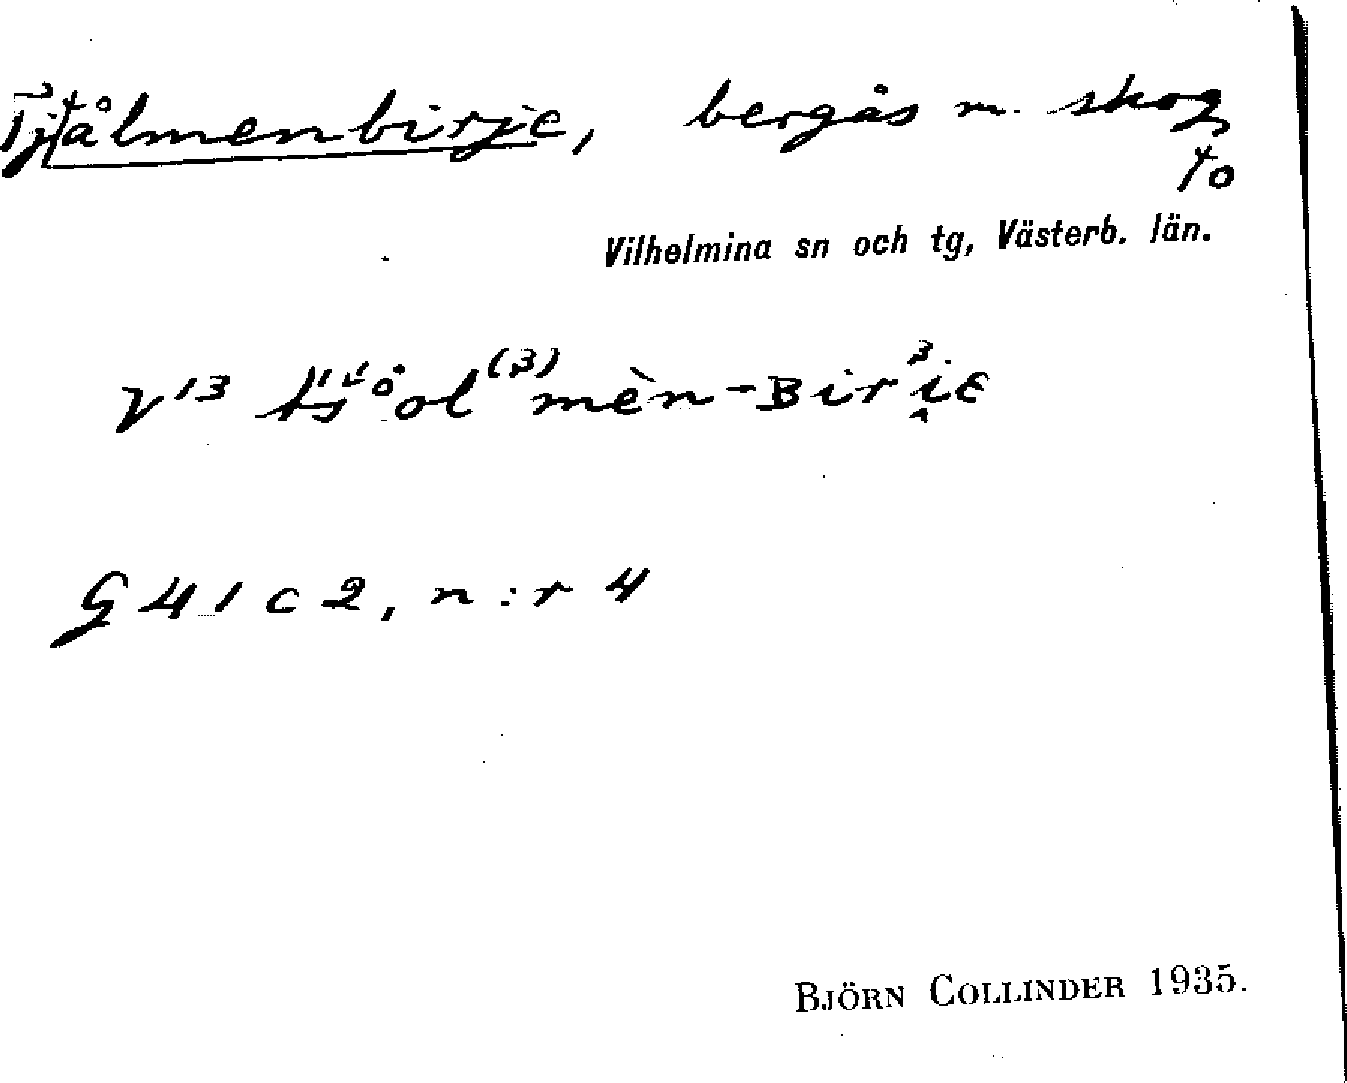 Tjålmenbirje, bergås m. skog
to
Vilhelmina sn och tg, Västerb. län.
V13
G 41 c 2, n:r 4
BJÖRN COLLINDER 1935.